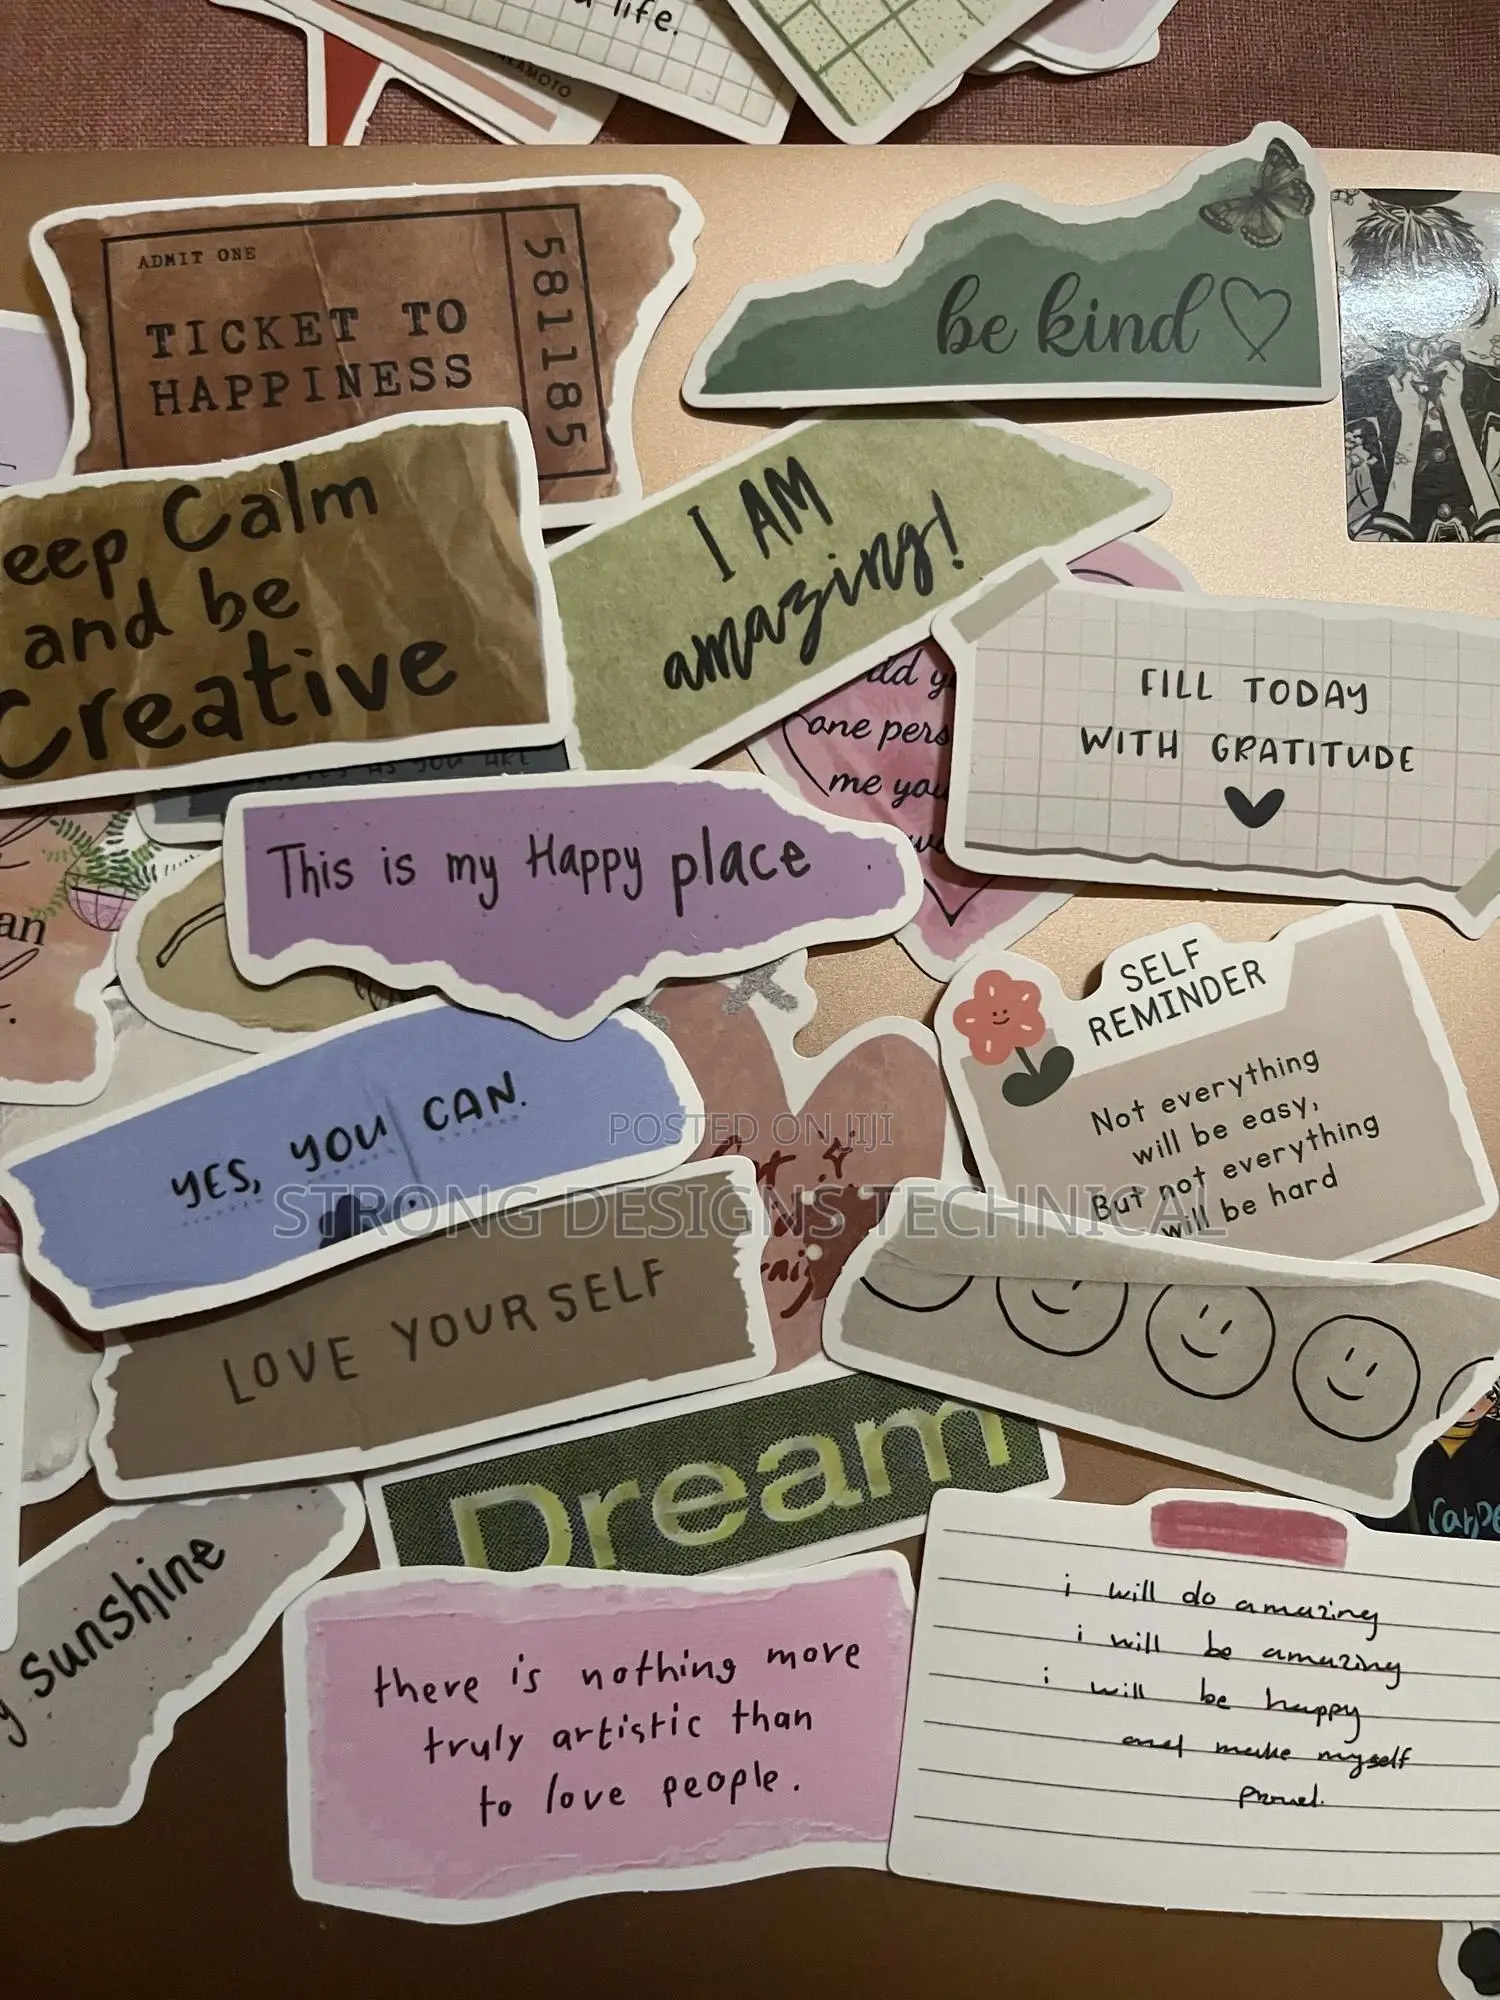 life.
ADMIT ONE
TICKET TO
HAPPINESS
581185
be kind
eep Calm
and be
Creative
I AM
amazing!
one pers
me you
FILL TODAY
WITH GRATITUDE
AS YOU ARE
This is my Happy place
an
SELF
REMINDER
Not everything
will be easy,
But not everything
will be hard
YES, YOU CAN.
POSTED ON JIJI
STRONG DESIGNS TECHNICAL
LOVE YOURSELF
Dream
sunshine
there is nothing more
truly artistic than
to love people.
i will do amazing
i will be amazing
i will be happy
and make myself
proud.